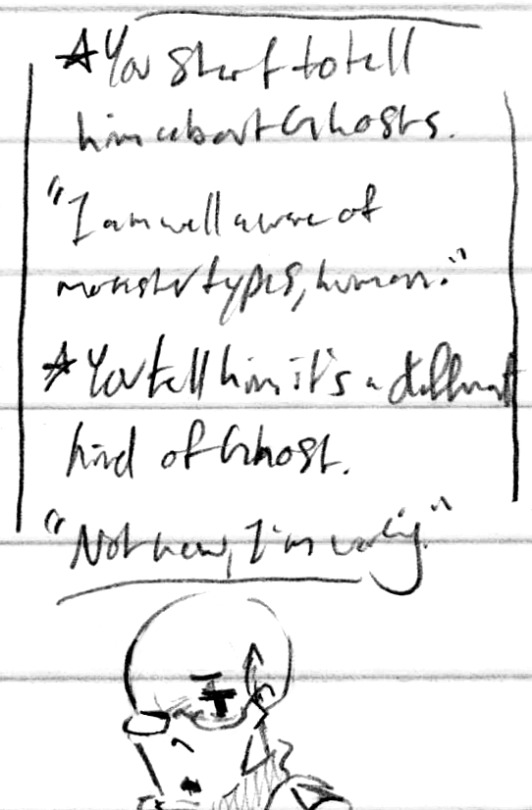 *You start to tell
him about Ghosts.
"I am well aware of
monster types, human."
*You tell him it's a different
kind of Ghost.
"Not now, I'm working."